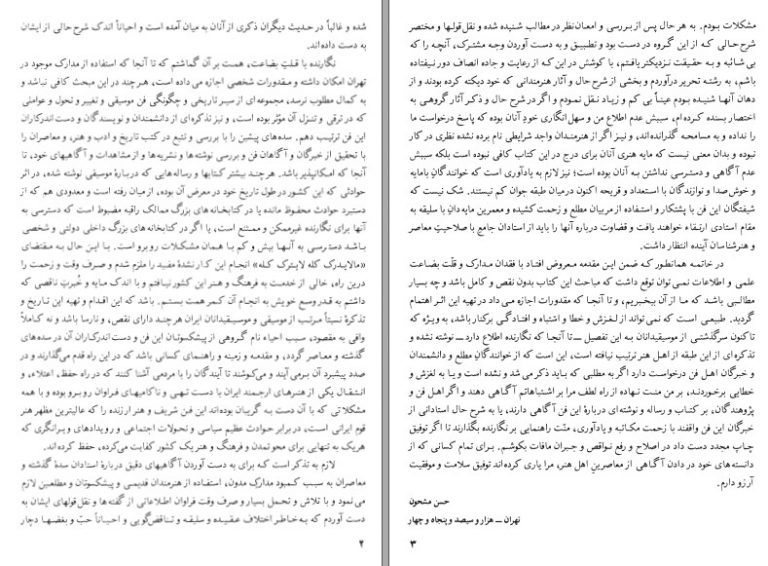 شده و غالباً در حدیث دیگران ذکری از آنان به میان آمده است و احیاناً اندک شرح حالی از ایشان
به دست داده‌اند.
نگارنده با قلت بضاعت، همت بر آن گماشتم که تا آنجا که استفاده از مدارک موجود در
تهران امکان داشته و مقدورات شخصی اجازه می داده است، هر چند در این مبحث کافی نباشد و
به کمال مطلوب نرسد، مجموعه‌ای از سیر تاریخی و چگونگی فن موسیقی و تغییر و تحول و عواملی
که در ترقی و تنزل آن مؤثر بوده است، و نیز تذکره‌ای از دانشمندان و نویسندگان و دست اندرکاران
این فن ترتیب دهم. سده‌های پیشین را با بررسی و تتبع در کتب تاریخ و ادب و هنر، و معاصران را
با تحقیق از خبرگان و آگاهان فن و بررسی نوشته‌ها و نشریه‌ها و از مشاهدات و آگاهیهای خود، تا
آنجا که امکانپذیر باشد. هر چند بیشتر کتابها و رساله‌هایی که دربارهٔ موسیقی نوشته شده، در اثر
حوادثی که این کشور در طول تاریخ خود در معرض آن بوده، از میان رفته است و معدودی هم که از
دستبرد حوادث محفوظ مانده یا در کتابخانه‌های بزرگ ممالک راقیه مضبوط است که دسترسی به
آنها برای نگارنده غیرممکن و ممتنع است، یا اگر در کتابخانه‌های بزرگ داخلی دولتی و شخصی
باشد دسترسی به آنها بیش و کم با همان مشکلات روبرو است. با این حال به مقتضای
«مالایدرک کله لایترک کله» انجام این کار نشدهٔ مفید را ملزم شدم و صرف وقت و زحمت را
درین راه، خالی از خدمت به فرهنگ و هنر این کشور نیافتم و با اندک مایه و خُبرتِ ناقصی که
داشتم به قدر وسع خویش به انجام آن کمر همت بستم. باشد که این اقدام و تهیه این تاریخ و
تذکرهٔ نسبتاً مرتب از موسیقی و موسیقیدانان ایران هر چند دارای نقص، و نارسا باشد و نه کاملاً
وافی به مقصود، سبب احیاء نام گروهی از پیشکسوتان این فن و دست اندرکاران آن در سده‌های
گذشته و معاصر گردد، و مقدمه و زمینه و راهنمای کسانی باشد که در این راه قدم می‌گذارند و در
صدد پیشبرد آن بر می آیند و می‌کوشند تا آیندگان را با مردمی آشنا کنند که در راه حفظ، اعتلاء، و
انتقال یکی از هنرهای ارجمند ایران با دست تهی و ناکامیهای فراوان روبرو بوده و با همه
مشکلاتی که با آن دست به گریبان بوده‌اند این فن شریف و هنر ارزنده را که عالیترین مظهر هنر
قوم ایرانی است، در برابر حوادث عظیم سیاسی و تحولات اجتماعی و رویدادهای ویرانگری که
هر یک به تنهایی برای محو تمدن و فرهنگ و هنر یک کشور کفایت می‌کرده، حفظ کرده‌اند.
لازم به تذکر است که برای به دست آوردن آگاهیهای دقیق دربارهٔ استادان سدهٔ گذشته و
معاصران به سبب کمبود مدارک مدون، استفاده از هنرمندان قدیمی و پیشکسوتان و مطلعین لازم
می نمود و با تلاش و تحمل بسیار و صرف وقت فراوان اطلاعاتی از گفته‌ها و نقل قولهای ایشان به
دست آوردم که به خاطر اختلاف عقیده و سلیقه و تناقض گویی و احیاناً حبّ و بغضها دچار
۲
مشکلات بودم. به هر حال پس از بررسی و امعان نظر در مطالب شنیده شده و نقل قولها و مختصر
شرح حالی که از این گروه در دست بود و تطبیق و به دست آوردن وجه مشترک، آنچه را که
بی شائبه و به حقیقت نزدیکتر یافتم، با کوشش در این که از رعایت و جاده انصاف دور نیفتاده
باشم، به رشتهٔ تحریر درآوردم و بخشی از شرح حال و آثار هنرمندانی که خود دیکته کرده بودند و از
دهان آنها شنیده بودم عیناً بی کم و زیاد نقل نمودم و اگر در شرح حال و ذکر آثار گروهی به
اختصار بسنده کرده‌ام، سببش عدم اطلاع من و سهل انگاری خودِ آنان بوده که پاسخ درخواست ما
را نداده و به مسامحه گذرانده‌اند، و نیز اگر از هنرمندان واجد شرایطی نام برده نشده نظری در کار
نبوده و بدان معنی نیست که مایه هنری آنان برای درج در این کتاب کافی نبوده است بلکه سببش
عدم آگاهی و دسترسی نداشتن به آنان بوده است؛ نیز لازم به یادآوری است که خوانندگان بامایه
و خوش صدا و نوازندگان با استعداد و قریحه اکنون در میان طبقه جوان کم نیستند. شک نیست که
شیفتگان این فن با پشتکار و استفاده از مربیان مطلع و زحمت کشیده و معمرین مایه دانِ با سلیقه به
مقام استادی ارتقاء خواهند یافت و قضاوت درباره آنها را باید از استادان جامعِ با صلاحیت معاصر
و هنرشناسان آینده انتظار داشت.
در خاتمه همانطور که ضمن این مقدمه معروض افتاد با فقدان مدارک و قلّت بضاعت
علمی و اطلاعات نمی توان توقع داشت که مباحث این کتاب بدون نقص و کامل باشد و چه بسیار
مطالبی باشد که ما از آن بیخبریم، و تا آنجا که مقدورات اجازه می داد در تهیه این اثر اهتمام
گردید. طبیعی است که نمی تواند از لغزش و خطا و اشتباه و افتادگی برکنار باشد، به ویژه که
تا کنون سرگذشتی از موسیقیدانان به این تفصیل ــ تا آنجا که نگارنده اطلاع دارد ــ نوشته نشده و
تذکره‌ای از این طبقه از اهل هنر ترتیب نیافته است، این است که از خوانندگانِ مطلع و دانشمندان
و خبرگان اهل فن درخواست دارد اگر به مطلبی که باید ذکر می شد و نشده است و یا به لغزش و
خطایی برخوردند، بر من منت نهاده از راه لطف مرا بر اشتباهاتم آگاهی دهند و اگر اهل فن و
پژوهندگان، بر کتاب و رساله و نوشته‌ای دربارهٔ این فن آگاهی دارند، یا به شرح حال استادانی از
خبرگان این فن واقفند با زحمت مکاتبه و یادآوری، منّت راهنمایی بر نگارنده بگذارند تا اگر توفیق
چاپ مجدد دست داد در اصلاح و رفع نواقص و جبران مافات بکوشم. برای تمام کسانی که از
دانسته‌های خود در دادن آگاهی از معاصرین اهل هنر، مرا یاری کرده‌اند توفیق سلامت و موفقیت
آرزو دارم.
حسن مشحون
تهران ــ هزار و سیصد و پنجاه و چهار
۳